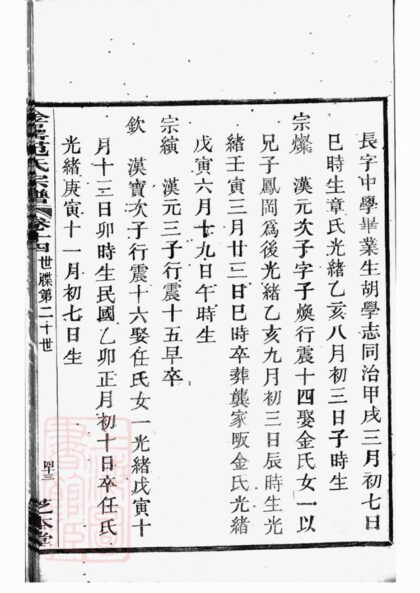 長字中學畢業生胡學志同治甲戌三月初七日
巳時生章氏光緒乙亥八月初三日子時生
宗燦 漢元次子字子煥行震十四娶金氏女一以
兄子鳳岡為後光緒乙亥九月初三日辰時生光
緒壬寅三月廿二日巳時卒葬龔家畈金氏光緒
戊寅六月十九日午時生
宗縯 漢元三子行震十五早卒
欽 漢寶次子行震十六娶任氏女一光緒戊寅十
月十三日卯時生民國乙卯正月初十日卒任氏
光緒庚寅十一月初七日生
范氏宗譜 卷十四 世牒第二十世